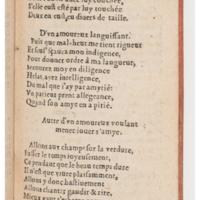 Elle eust esté par luy touchée
Dux en eust,eu diuers de taille.
D'vn amoureux languissant.
Puis que mal-heur me tient rigueur
Et mon indigence,
Pour donner ordre à ma langueur,
moy en diligence
Helas ayez intelligence,
Du mal que i'ay par amytié:
Vn patient prent allegeance,
Quand son amyt en a pitié.
Autre d'vn amoureux voulant
mener iouer s'amye.
Allons aux champs sur la verdure,
Passer le temps ioyeusement,
Ce pendant que le beau temps dure
Il n'est que viure plaisamment,
Allons y donc hastiuement
Allons chanter gaudir & rire,
Mieux vaut